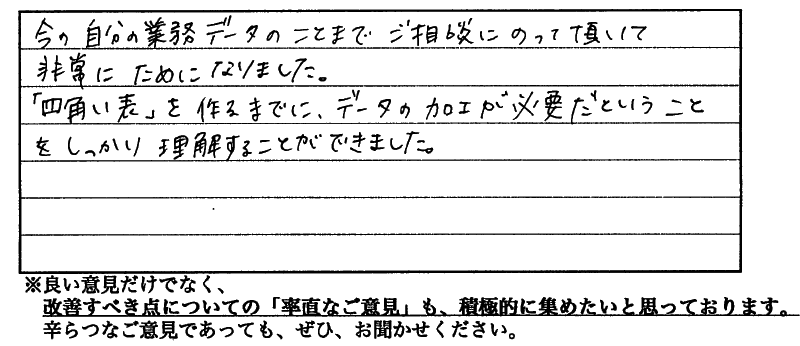 今の自分の業務データのことまでご相談にのって頂いて
非常にためになりました。
「四角い表」を作るまでに、データの加工が必要だということ
をしっかり理解することができました。
※良い意見だけでなく、
改善すべき点についての「率直なご意見」も、積極的に集めたいと思っております。
辛らつなご意見であっても、ぜひ、お聞かせください。